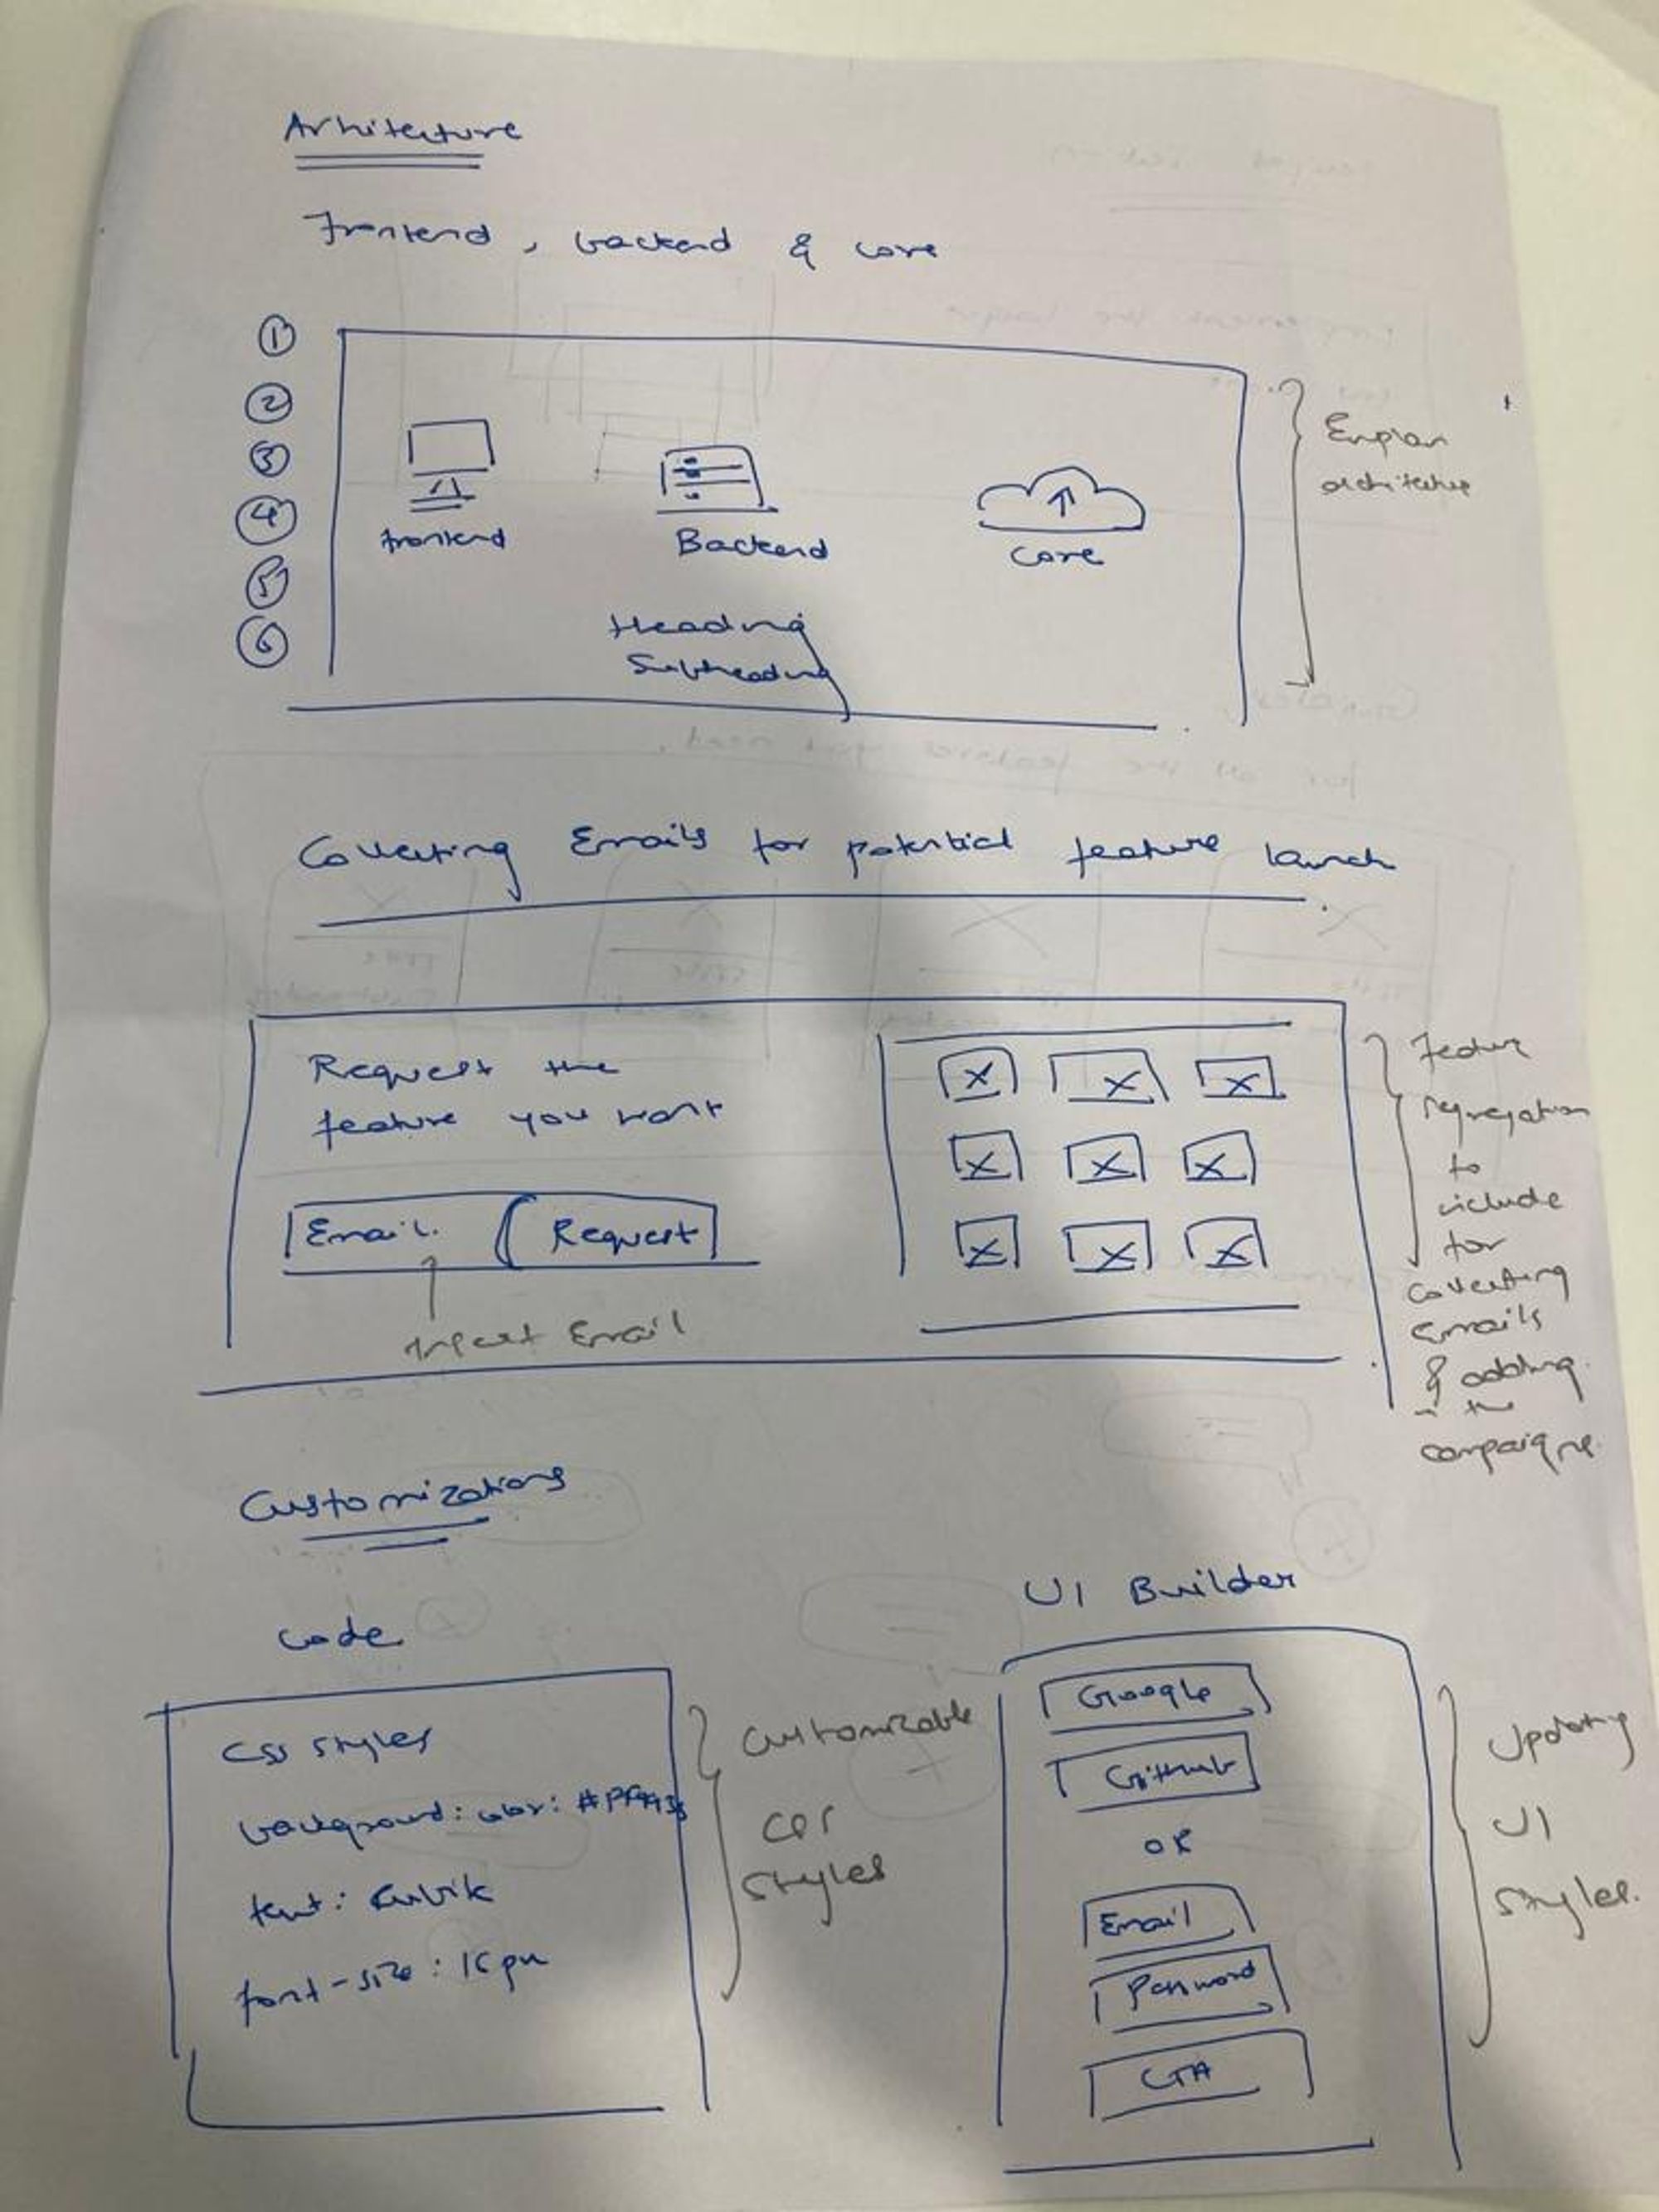 Arhitecture
Frontend, backend & core
1
2
3
4
5
6
frontend
Backend
core
Heading
Subheading
Explain
architecture
Collecting Emails for potential feature launch
Request the
feature you want
Email.
Request
Input Email
X X X
X X X
X X X
Feature
to
include
for
collecting
Emails
& adding
in the
campaigns.
Customizations
Code
CSS styles
background: color:
text: Rubik
font-size: 16px
Customizable
CSS
styles
UI Builder
Google
Github
OR
Email
Password
CTA
Updating
UI
styles.